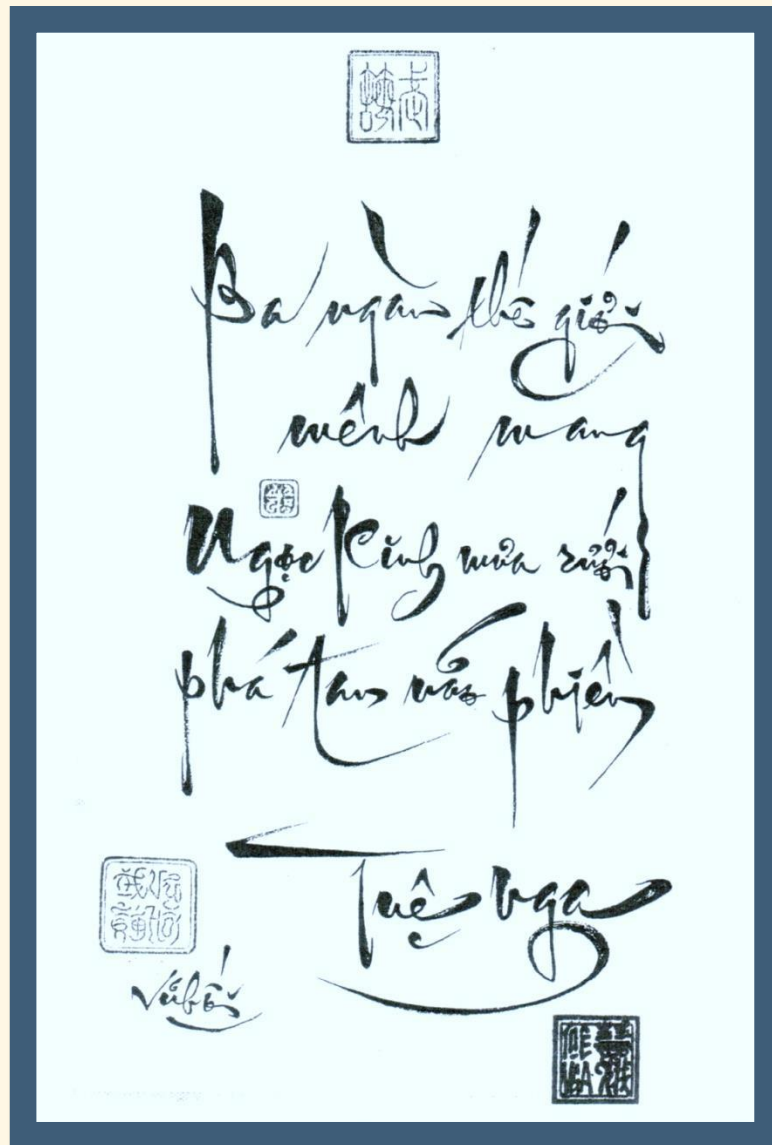 Ba ngàn thế giới
mênh mang
Ngọc Kinh mưa rưới
phá tan não phiền
Tuệ Nga
Vũ Hối